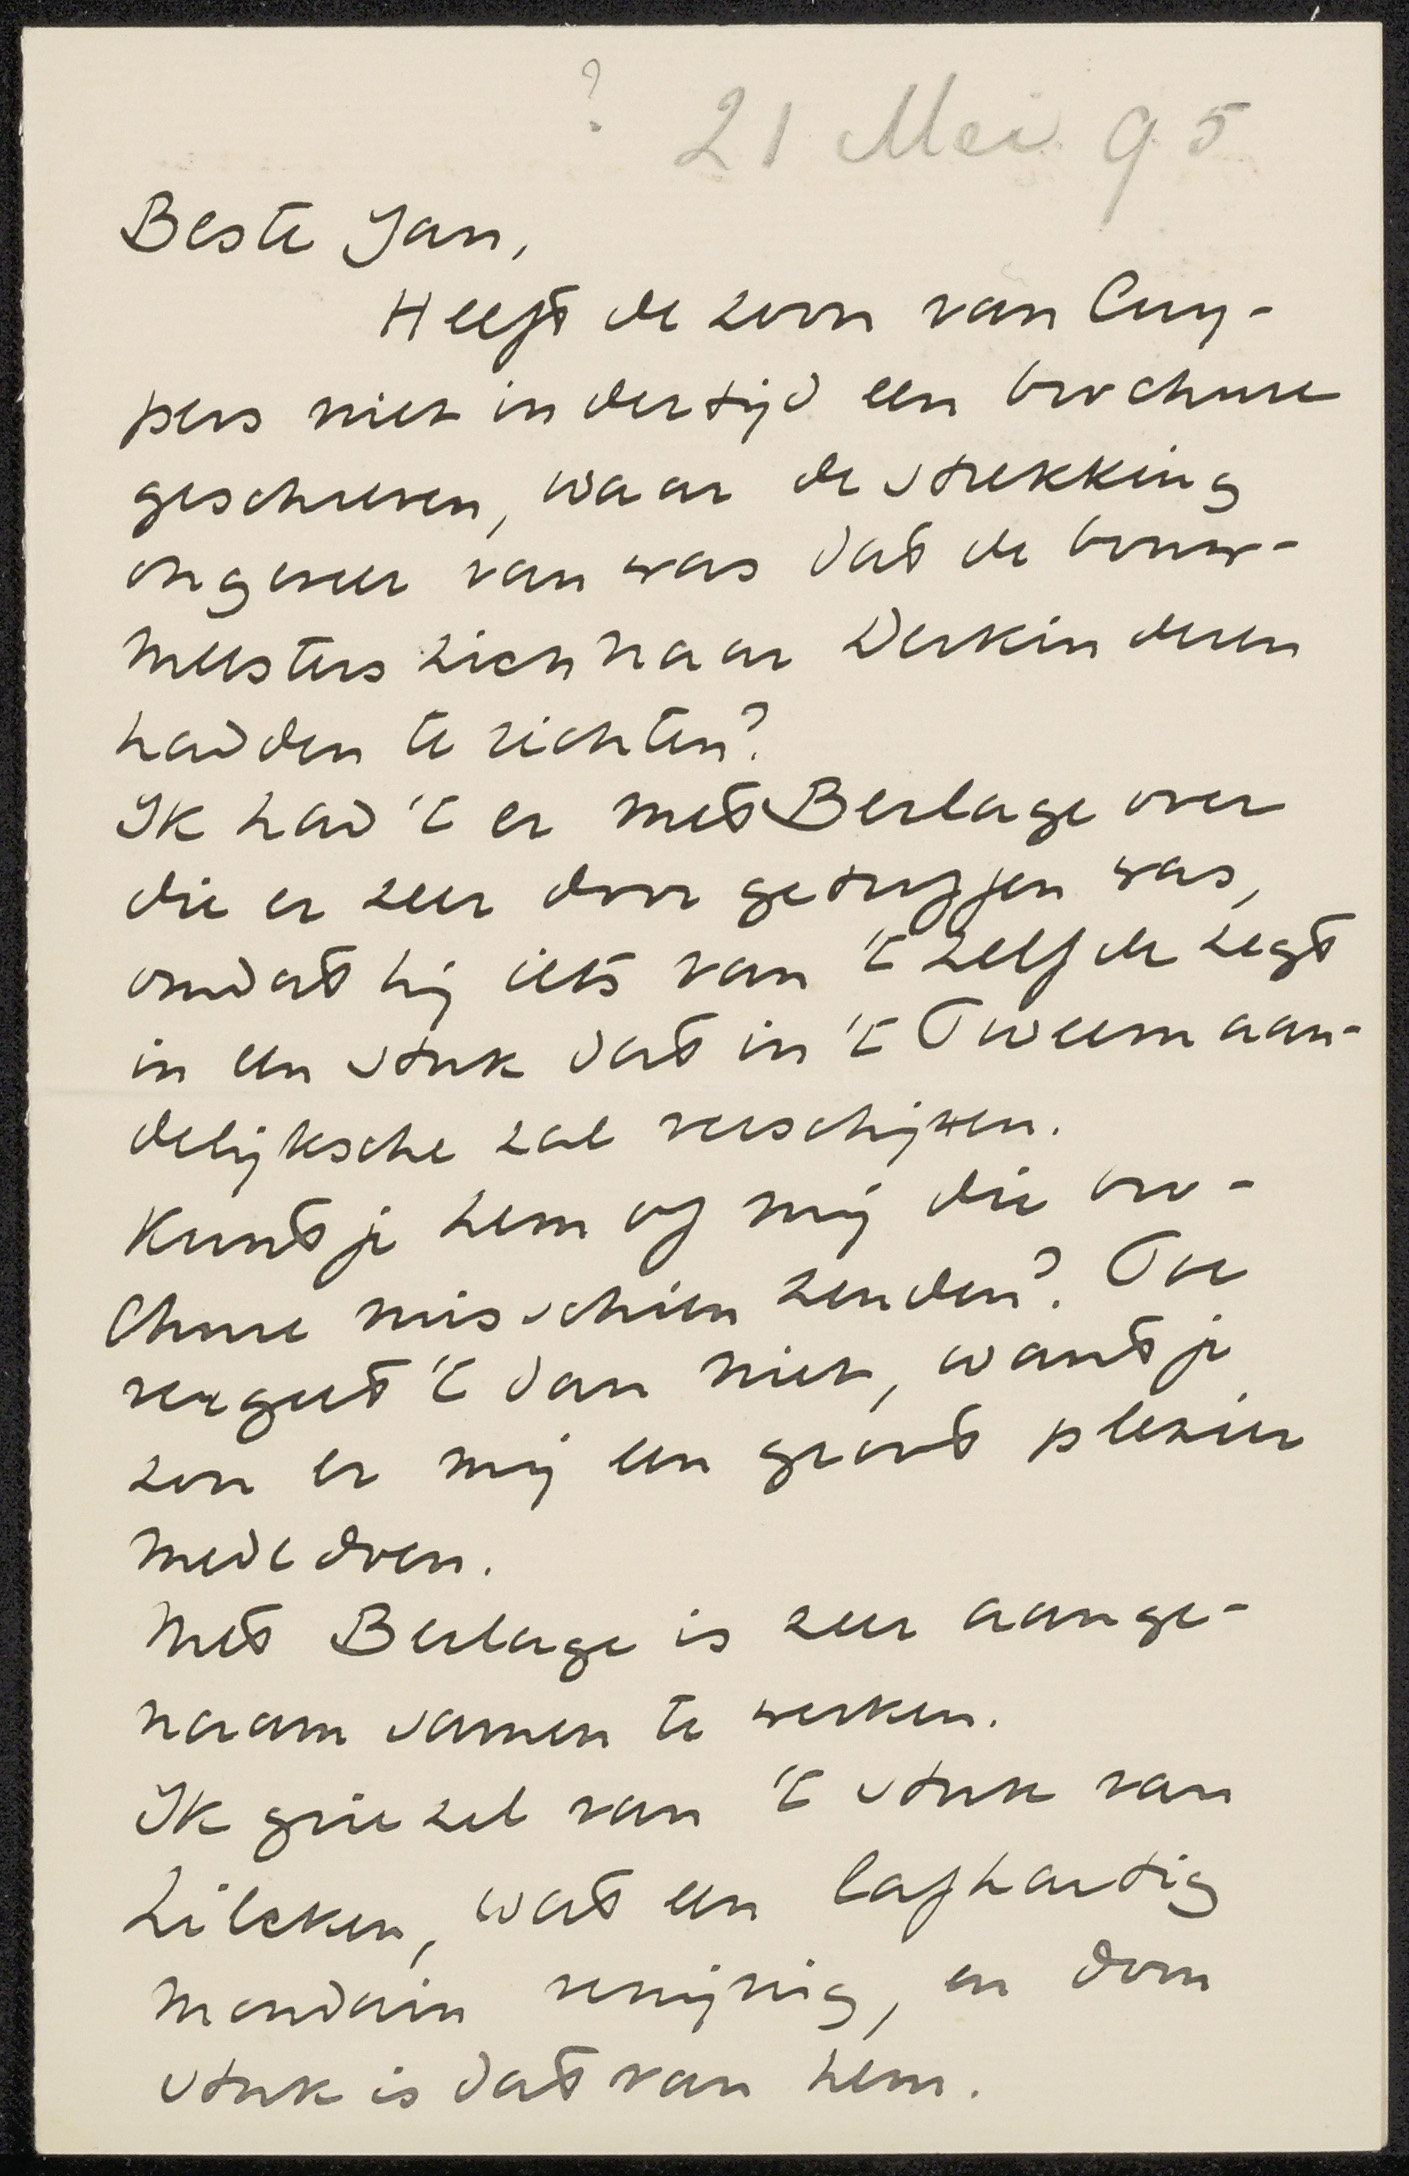 ? 21 Mei 95
Beste Jan,
Heeft de zoon van Cuy-
pers niet indertijd een brochure
geschreven, waar de strekking
ongeveer van was dat de bouw-
meesters zich naar Derkinderen
hadden te richten?
Ik had 't er met Berlage over
die er zeer door getroffen was,
omdat hij iets van 't zelfde zegt
in een stuk dat in 't Tweemaan-
delijksche zal verschijnen.
Kunt je hem of mij die bro-
chure misschien zenden? Toe
vergeet 't dan niet, want je
zou er mij een groot plezier
mede doen.
Met Berlage is zeer aange-
naam samen te werken.
Ik griezel van 't stuk van
Zilcken, wat een lafhartig
mondain venijnig, en dom
stuk is dat van hem.